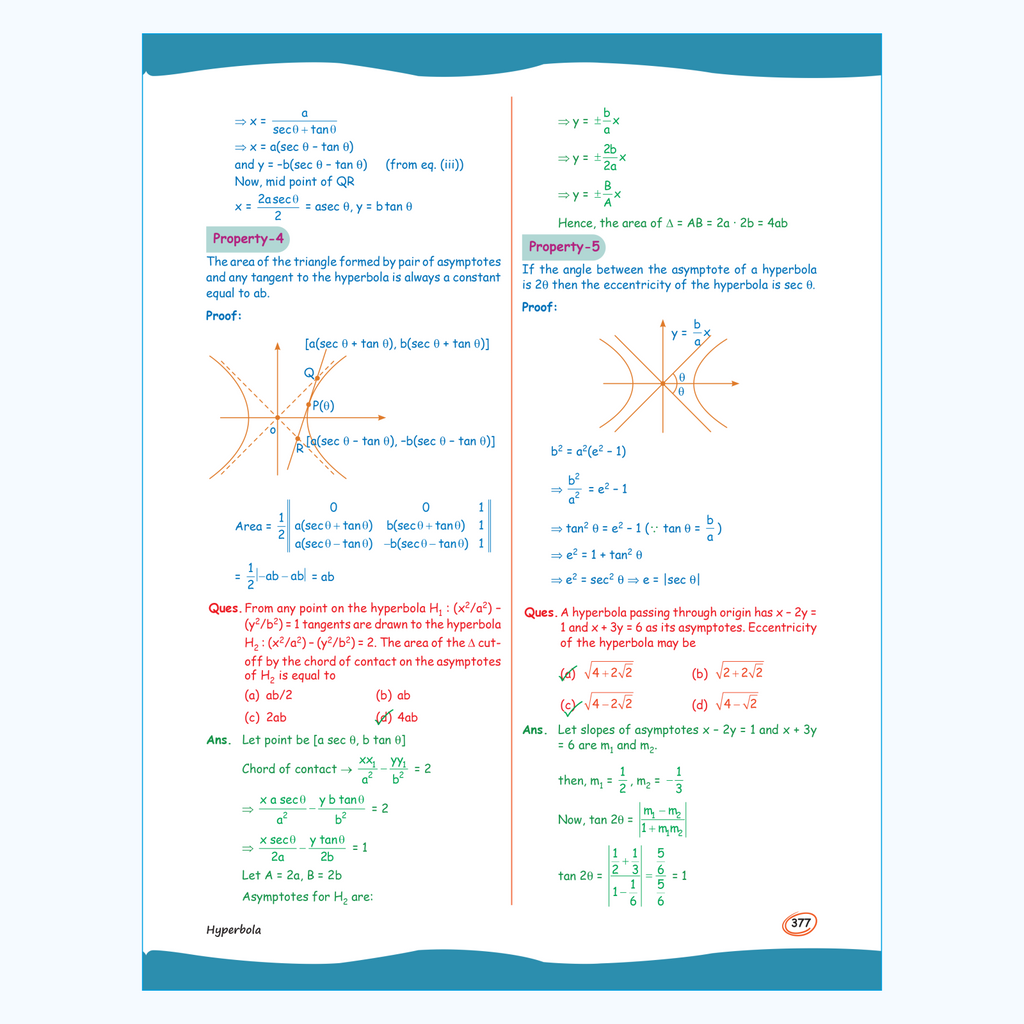 ⇒ x = a / (sec θ + tan θ)
⇒ x = a(sec θ – tan θ)
and y = –b(sec θ – tan θ) (from eq. (iii))
Now, mid point of QR
x = 2a sec θ / 2 = asec θ, y = b tan θ
Property-4
The area of the triangle formed by pair of asymptotes
and any tangent to the hyperbola is always a constant
equal to ab.
Proof:
[a(sec θ + tan θ), b(sec θ + tan θ)]
Q
P(θ)
o
R [a(sec θ – tan θ), –b(sec θ – tan θ)]
Area = 1/2 || 0 0 1
a(sec θ + tan θ) b(sec θ + tan θ) 1
a(sec θ – tan θ) –b(sec θ – tan θ) 1 ||
= 1/2 |–ab – ab| = ab
Ques. From any point on the hyperbola H₁ : (x²/a²) –
(y²/b²) = 1 tangents are drawn to the hyperbola
H₂ : (x²/a²) – (y²/b²) = 2. The area of the Δ cut-
off by the chord of contact on the asymptotes
of H₂ is equal to
(a) ab/2 (b) ab
(c) 2ab (d) 4ab
Ans. Let point be [a sec θ, b tan θ]
Chord of contact → xx₁/a² – yy₁/b² = 2
⇒ x a sec θ / a² – y b tan θ / b² = 2
⇒ x sec θ / 2a – y tan θ / 2b = 1
Let A = 2a, B = 2b
Asymptotes for H₂ are:
⇒ y = ± b/a x
⇒ y = ± 2b/2a x
⇒ y = ± B/A x
Hence, the area of Δ = AB = 2a · 2b = 4ab
Property-5
If the angle between the asymptote of a hyperbola
is 2θ then the eccentricity of the hyperbola is sec θ.
Proof:
y = b/a x
θ
θ
b² = a²(e² – 1)
⇒ b²/a² = e² – 1
⇒ tan² θ = e² – 1 (∵ tan θ = b/a)
⇒ e² = 1 + tan² θ
⇒ e² = sec² θ ⇒ e = |sec θ|
Ques. A hyperbola passing through origin has x – 2y =
1 and x + 3y = 6 as its asymptotes. Eccentricity
of the hyperbola may be
(a) √(4 + 2√2) (b) √(2 + 2√2)
(c) √(4 – 2√2) (d) √(4 – √2)
Ans. Let slopes of asymptotes x – 2y = 1 and x + 3y
= 6 are m₁ and m₂.
then, m₁ = 1/2, m₂ = –1/3
Now, tan 2θ = |(m₁ – m₂)/(1 + m₁m₂)|
tan 2θ = |(1/2 + 1/3)/(1 – 1/6)| = (5/6)/(5/6) = 1
Hyperbola
377